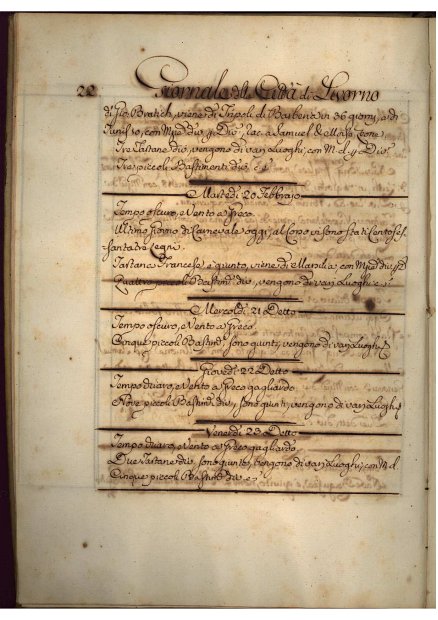 22 Giornale della Città di Livorno
di Gio. Bratich, viene di Tripoli di Barberia in 36 giorni, e di
con Mzie div. Samuel de
Tre Tartane div. vengono di van Luoghi, con M. d.
Tre piccoli Bastimenti div.
Martedì 20 Febbraio
Tempo oscuro, e Vento a Greco
Ultimo giorno di Carnevale oggi, al Corso vi sono stati Centoses-
santatre Legni
Tartana Francese è giunto, viene di Marsilia con Mzie div.
Quattro piccoli Bastim. div. vengono di van Luoghi
Mercoldì 21 Detto
Tempo oscuro, e Vento a Greco
Cinque piccoli Bastim. sono giunti, vengono di van Luoghi
Giovedì 22 Detto
Tempo chiaro, e Vento a Greco gagliardo
Nove piccoli Bastim. div. sono giunti, vengono di van Luoghi
Venerdì 23 Detto
Tempo chiaro, Vento a Greco gagliardo
Due Tartane div. sono giunte, vengono di van Luoghi, con M. d.
Cinque piccoli Bastim. div.